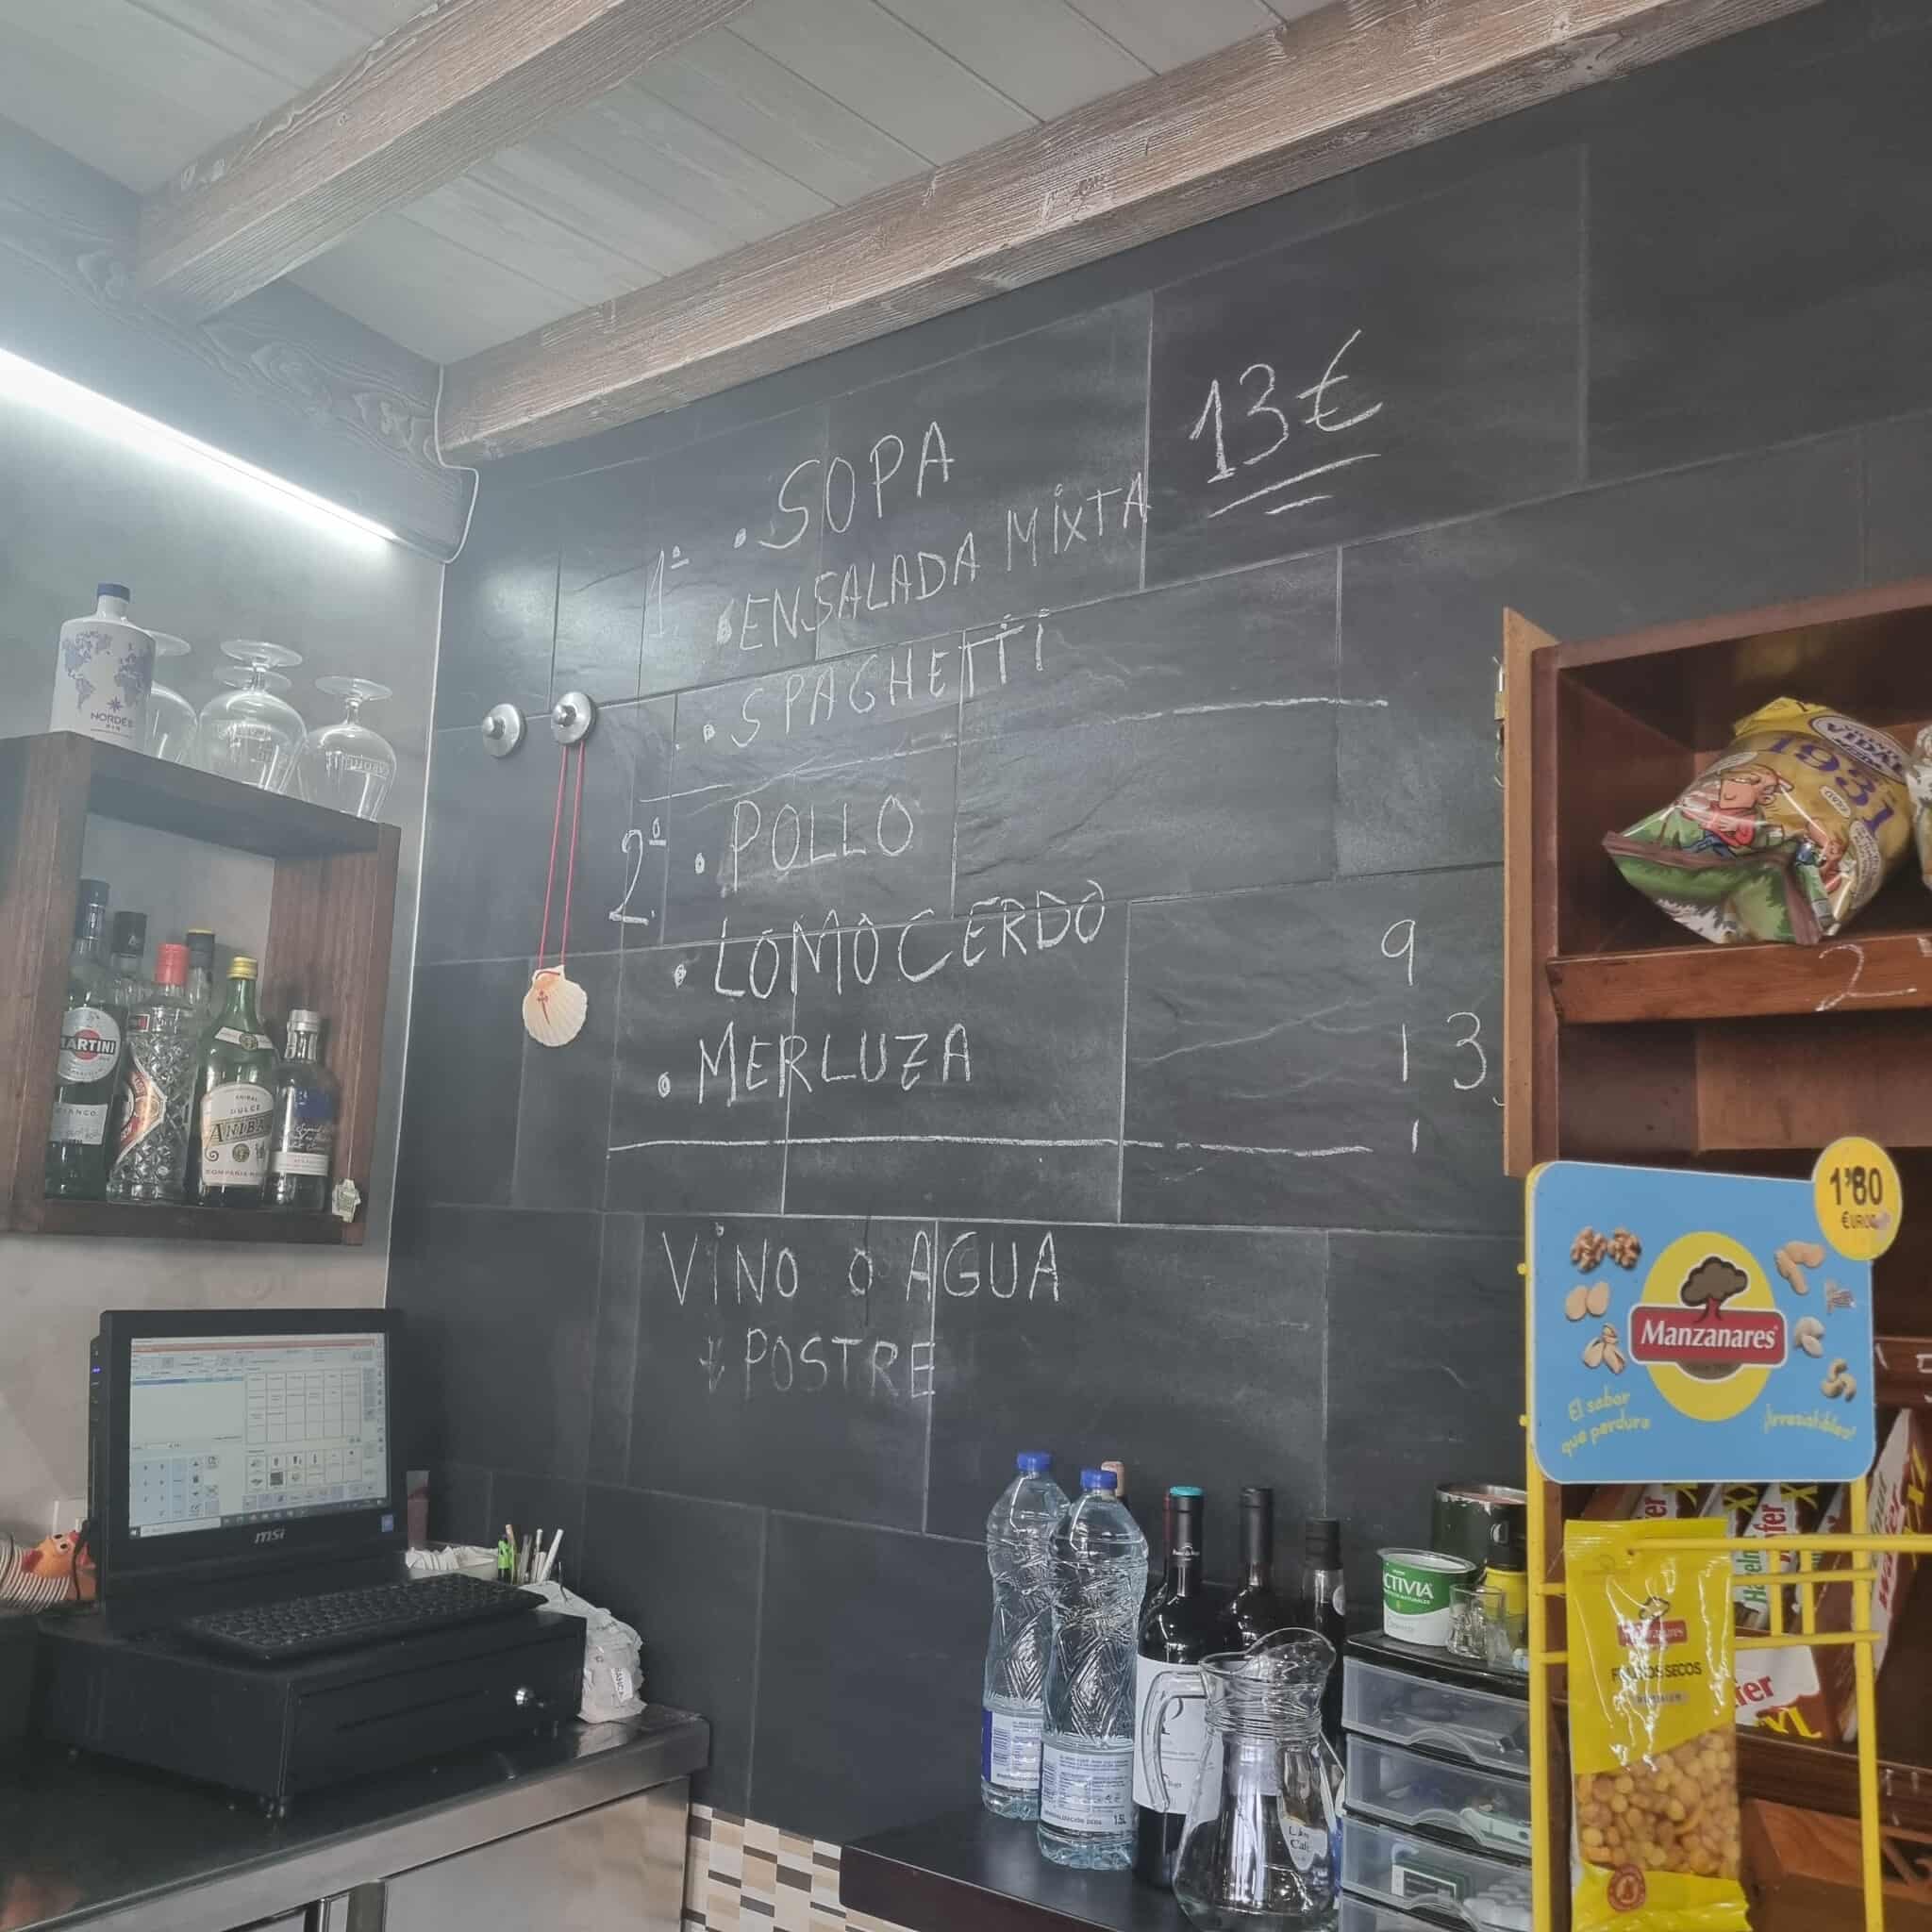 13€
1ª • SOPA
• ENSALADA MIXTA
• SPAGHETTI
2º • POLLO
• LOMO CERDO
• MERLUZA
9
1 3
1
VINO O AGUA
+ POSTRE
NORDÉS
GIN
MARTINI
BIANCO
DULCE
ANIBAL
msi
VIDAL
1931
2
1'80
€URO
Manzanares
El sabor
que perdura
¡Irresistibles!
ACTIVIA
FRUTOS SECOS
1.5L
XXL